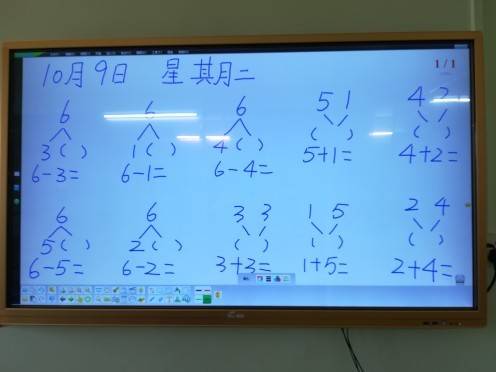 10月9日 星期二
1/1
6 6 6 5 1 4 2
3( ) 1( ) 4( ) ( ) ( )
6-3= 6-1= 6-4= 5+1= 4+2=
6 6 3 3 1 5 2 4
5( ) 2( ) ( ) ( ) ( )
6-5= 6-2= 3+3= 1+5= 2+4=